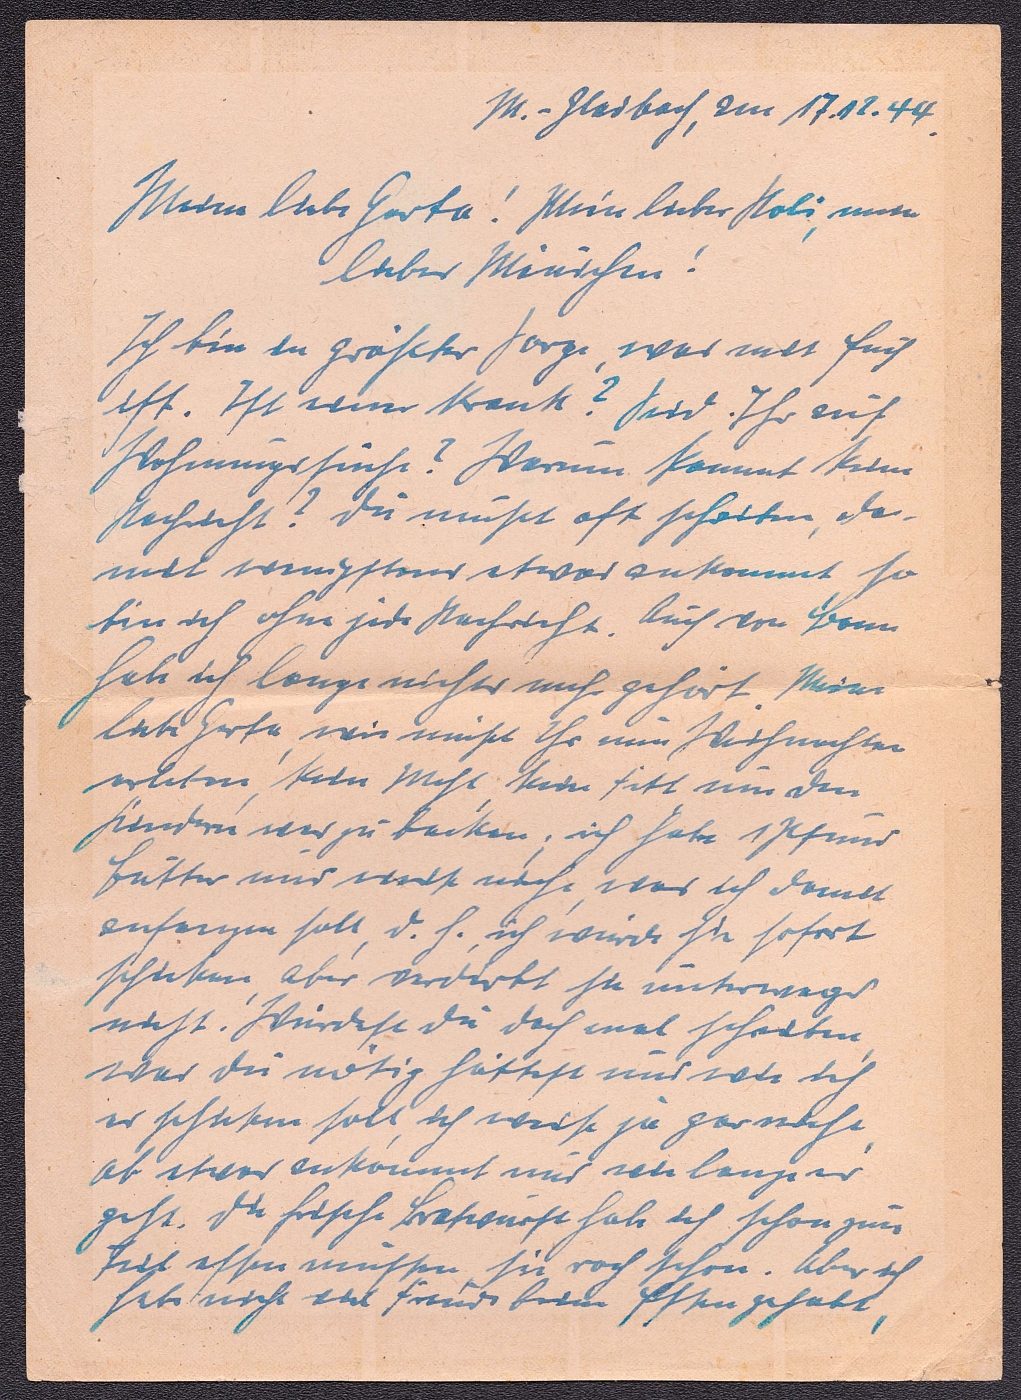 M.-Gladbach, am 17.12.44.
Meine liebe Gerta! Mein lieber Rolf, mein
lieber Mäuschen!
Ich bin in größter Sorge, was mit Euch
ist. Ist einer krank? Seid Ihr auf
Wohnungssuche? Warum kommt keine
Nachricht? Du mußt oft schreiben, da-
mit wenigstens etwas ankommt so
bin ich ohne jede Nachricht. Auch von Bonn
habe ich lange nichts mehr gehört. Meine
liebe Gerta, wie müßt Ihr nun Weihnachten
erleben, kein Mehl kein Fett um den
Kindern was zu backen; ich habe 1 Pfund
Butter und weiß nicht, was ich damit
anfangen soll, d. h., ich würde sie sofort
schicken, aber verdirbt sie unterwegs
nicht. Würdest du doch mal schreiben,
was du nötig hättest und wie ich
es schicken soll, ich weiß ja gar nicht,
ob etwas ankommt und wie lange es
geht. Die frische Bratwurst habe ich schon zum
Teil essen müssen, sie roch schon. Aber ich
habe nicht viel Freude beim Essen gehabt,